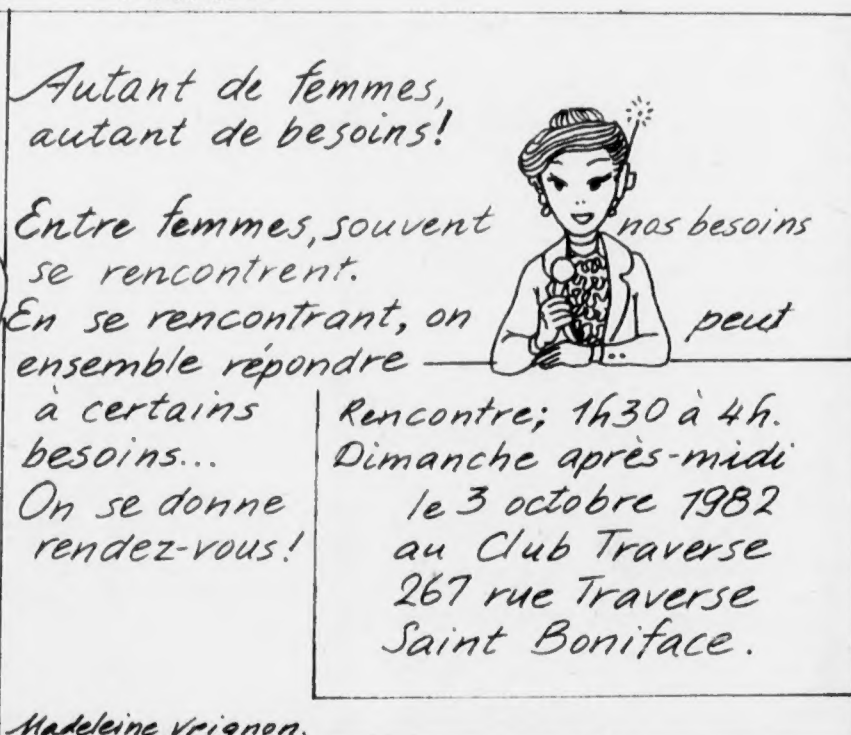 Autant de femmes,
autant de besoins!
Entre femmes, souvent nos besoins
se rencontrent.
En se rencontrant, on peut
ensemble répondre
à certains
besoins...
On se donne
rendez-vous!
Rencontre; 1h30 à 4h.
Dimanche après-midi
le 3 octobre 1982
au Club Traverse
267 rue Traverse
Saint Boniface.
Madeleine Vrignon.